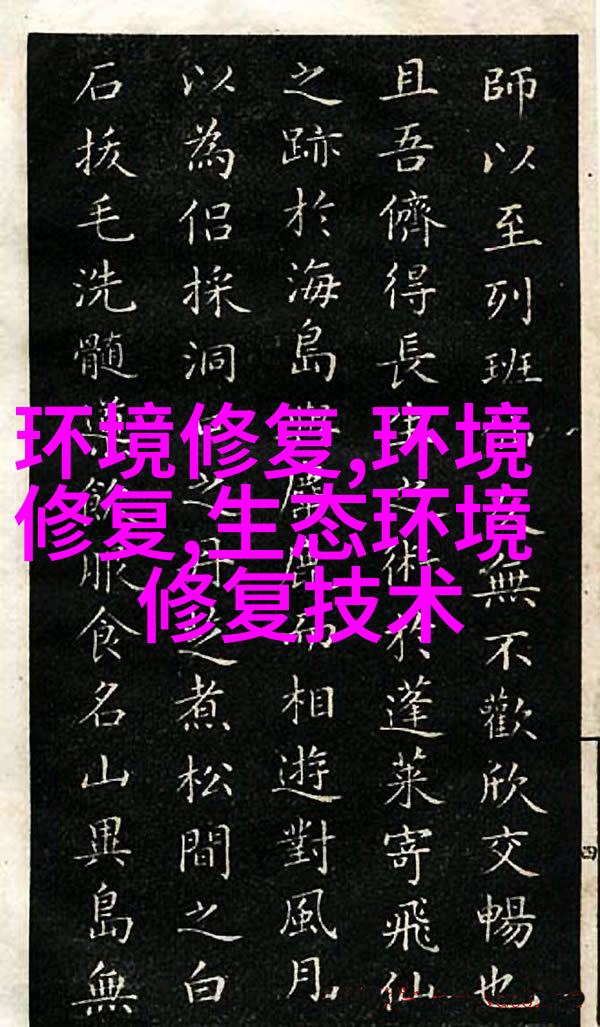 环境修复,环境
修复,生态环境
修复技术
師以至列班無不歡欣交暢也
且吾儕得長生之術於蓬萊寄飛仙
之跡於海島與而相遊對風月
以為侶採洞之煮松間之白
石拔毛洗髓服食名山異島無
四